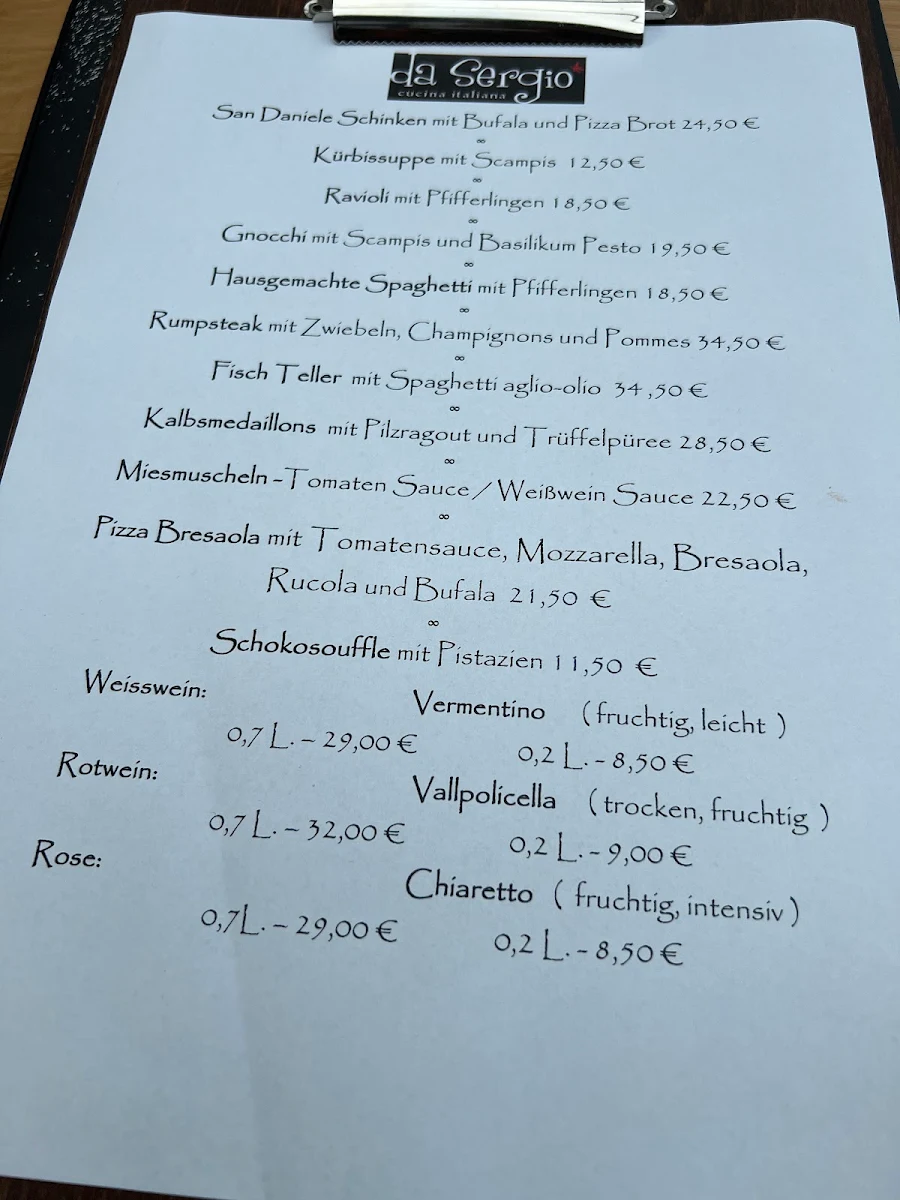 da Sergio
cucina italiana
San Daniele Schinken mit Bufala und Pizza Brot 24,50 €
∞
Kürbissuppe mit Scampis 12,50 €
∞
Ravioli mit Pfifferlingen 18,50 €
∞
Gnocchi mit Scampis und Basilikum Pesto 19,50 €
∞
Hausgemachte Spaghetti mit Pfifferlingen 18,50 €
∞
Rumpsteak mit Zwiebeln, Champignons und Pommes 34,50 €
∞
Fisch Teller mit Spaghetti aglio-olio 34,50 €
∞
Kalbsmedaillons mit Pilzragout und Trüffelpüree 28,50 €
∞
Miesmuscheln -Tomaten Sauce / Weißwein Sauce 22,50 €
∞
Pizza Bresaola mit Tomatensauce, Mozzarella, Bresaola,
Rucola und Bufala 21,50 €
∞
Schokosouffle mit Pistazien 11,50 €
Weisswein: Vermentino (fruchtig, leicht )
0,7 L. - 29,00 € 0,2 L. - 8,50 €
Rotwein: Vallpolicella (trocken, fruchtig )
0,7 L. - 32,00 € 0,2 L. - 9,00 €
Rose: Chiaretto ( fruchtig, intensiv )
0,7L. - 29,00 € 0,2 L. - 8,50 €